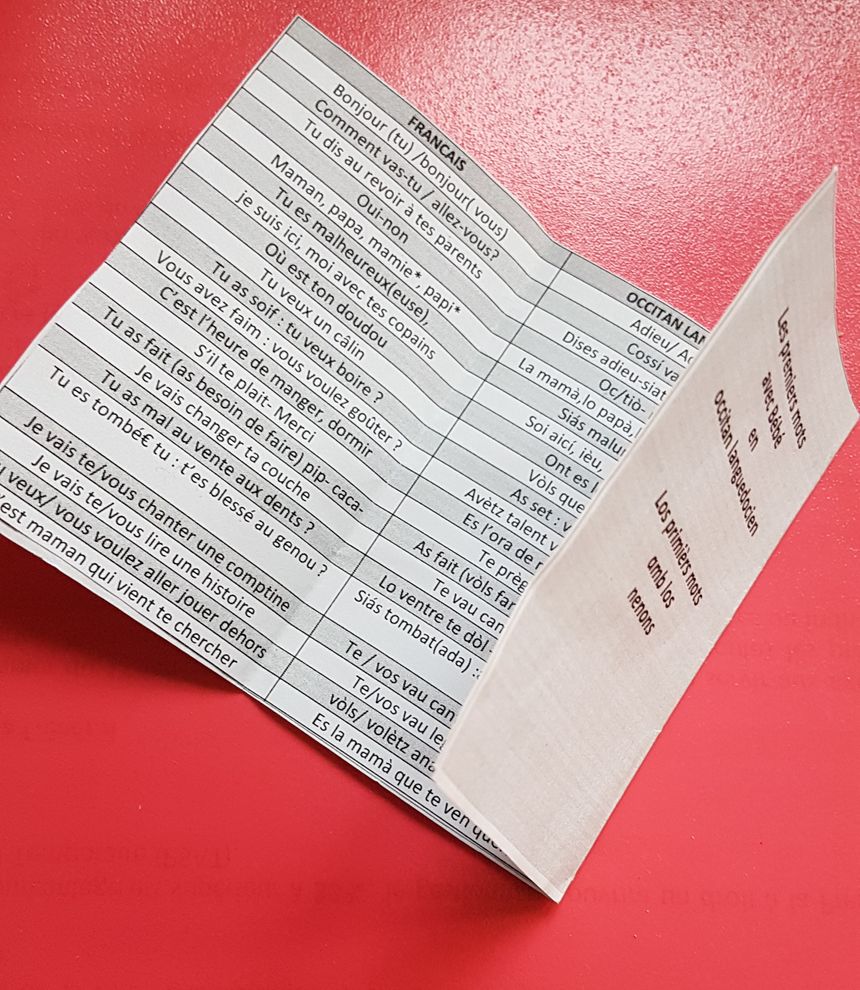 FRANCAIS
Bonjour (tu) /bonjour( vous)
Comment vas-tu / allez-vous?
Tu dis au revoir à tes parents
Oui-non
Maman, papa, mamie*, papi*
Tu es malheureux(euse),
je suis ici, moi avec tes copains
Où est ton doudou
Tu veux un câlin
Tu as soif : tu veux boire ?
Vous avez faim : vous voulez goûter ?
C'est l'heure de manger, dormir
S'il te plait- Merci
Tu as fait (as besoin de faire) pip- caca-
Je vais changer ta couche
Tu as mal au vente aux dents ?
Tu es tombé€ tu : t'es blessé au genou ?
Je vais te/vous chanter une comptine
Je vais te/vous lire une histoire
veux/ vous voulez aller jouer dehors
est maman qui vient te chercher
OCCITAN
Adieu/
Cossí
Dises adieu-siat
Oc/tiò-
La mamà,lo papà
Siás
Soi aicí, ièu,
Ont es
Vòls que
As set :
Avètz talent
Es l'ora de
Te
As fait (vòls
Te vau
Lo ventre te dòl
Siás tombat(ada) :
Te / vos vau
Te/vos vau
vòls/ volètz
Es la mamà que te ven
Les premiers mots
avec Bébé
en
occitan languedocien
Los primièrs mots
amb los
nenons